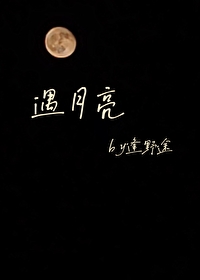 遇月亮
by逢野途